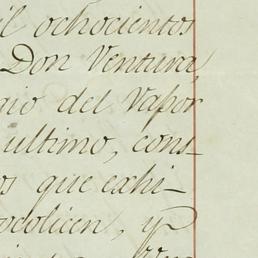 il ochocientos
Don Ventura,
gio del Vapor
ultimo, cons-
os que exhi-
ocolicen, y